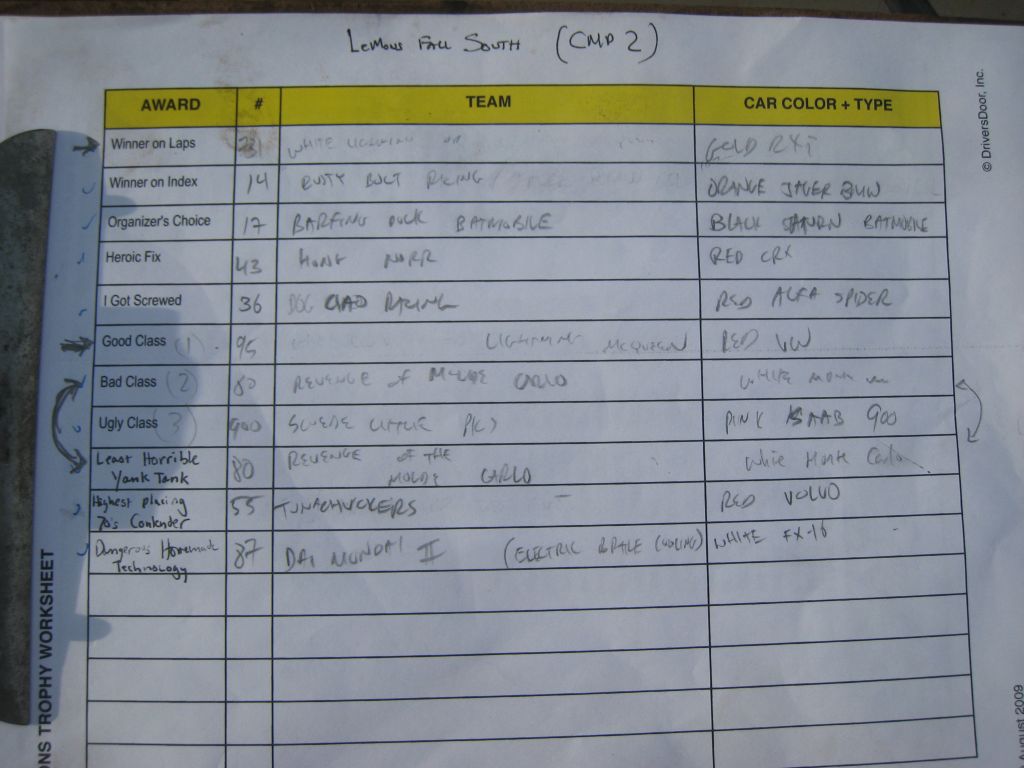 LeMons Fall South (CMP 2)
AWARD # TEAM CAR COLOR + TYPE
Winner on Laps WHITE LIGHTNING GOLD
Winner on Index 14 RUSTY BOLT RACING ORANGE JAGER BMW
Organizer's Choice 17 BARFING DUCK BATMOBILE BLACK SATURN BATMOBILE
Heroic Fix 43 HONG NORR RED CRX
I Got Screwed 36 RACING RED ALFA SPIDER
Good Class 1 95 LIGHTNING MCQUEEN RED VW
Bad Class 2 80 REVENGE of CARLO WHITE
Ugly Class 3 900 SWEDE PINK SAAB 900
Least Horrible
Yank Tank 80 REVENGE OF THE
CARLO White Monte Carlo
Highest placing
70's Contender 55 TUNACHUCKERS RED VOLVO
Dangerous Homemade
Technology 87 DAI MUNDAI II (ELECTRIC BRAKE COOLING) WHITE FX-16
© DriversDoor, Inc.
ONS TROPHY WORKSHEET
August 2009